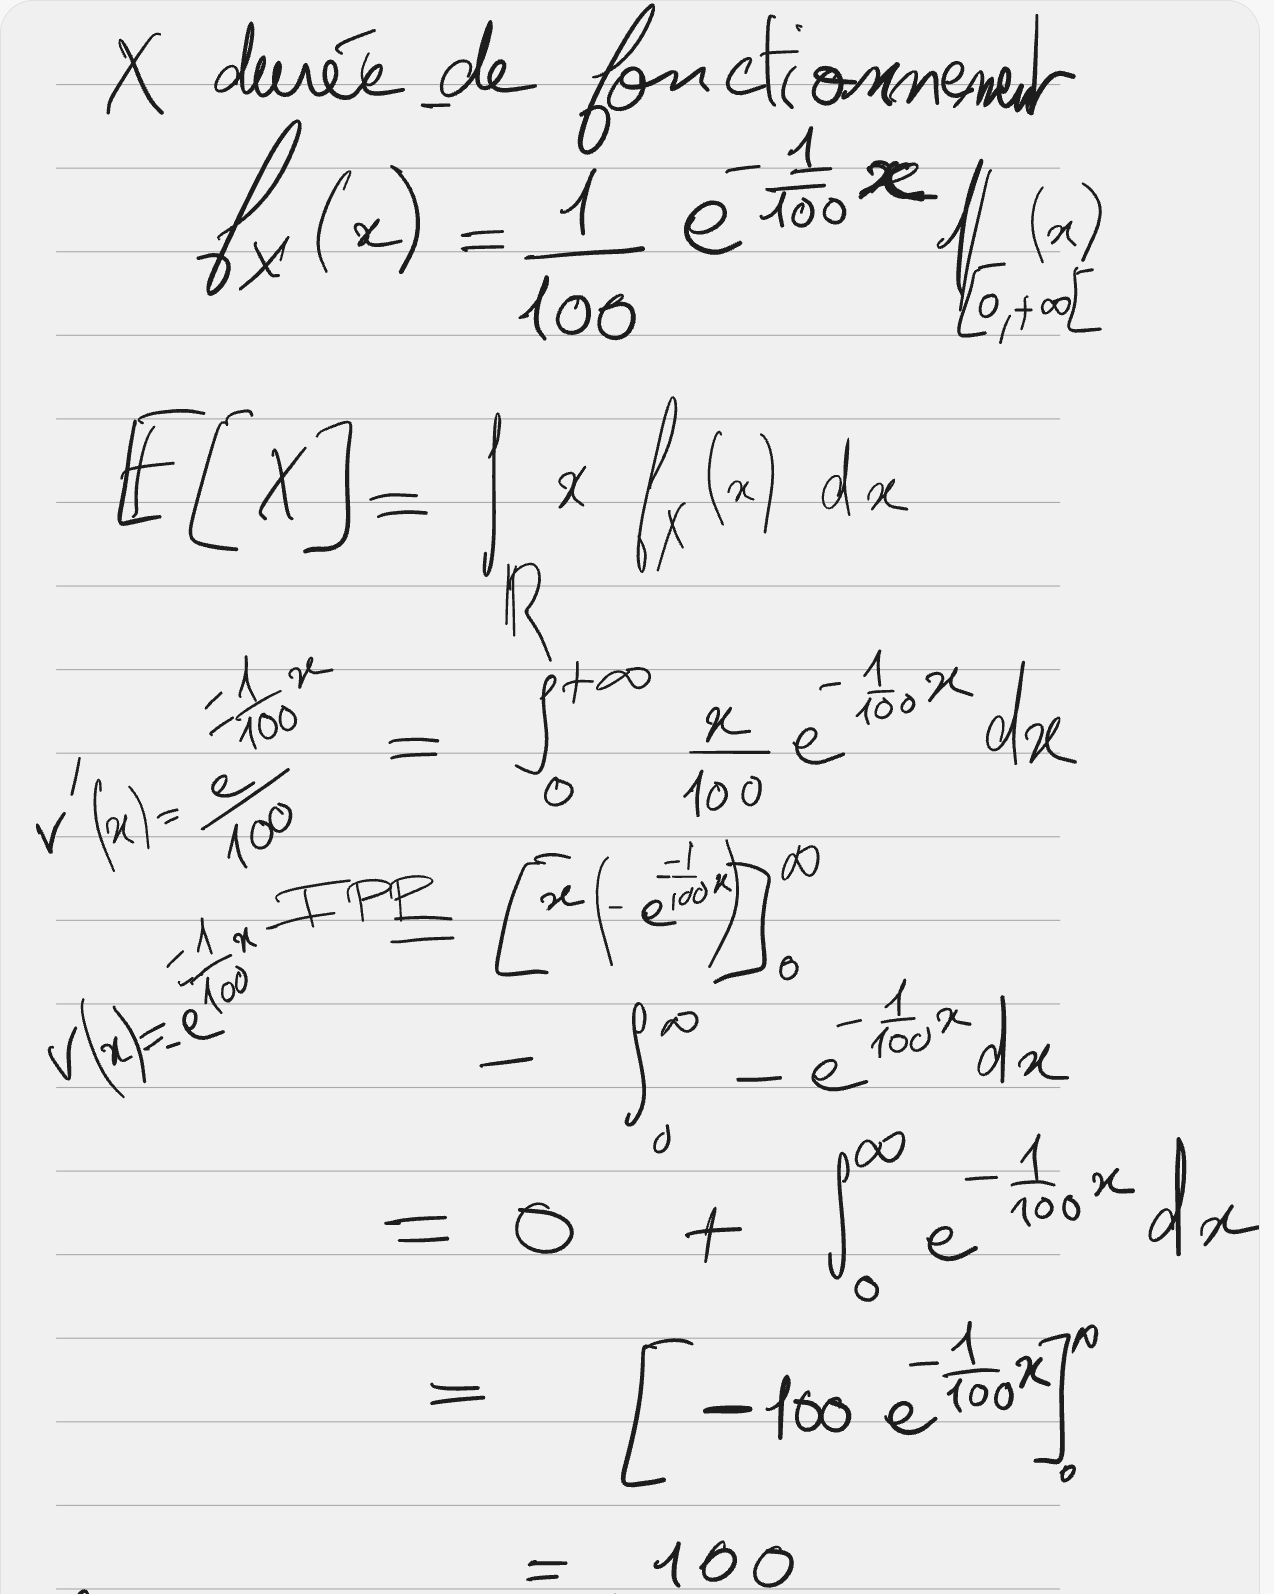 X durée de fonctionnement
f_X(x) = 1/100 e^{-1/100 x} 𝟙_{[0,+∞[}(x)
E[X] = ∫_ℝ x f_X(x) dx
= ∫_0^{+∞} x/100 e^{-1/100 x} dx
v'(x) = e^{-1/100 x}/100
IPP = [x(-e^{-1/100 x})]_0^∞
v(x) = -e^{-1/100 x}
- ∫_0^∞ -e^{-1/100 x} dx
= 0 + ∫_0^∞ e^{-1/100 x} dx
= [-100 e^{-1/100 x}]_0^∞
= 100